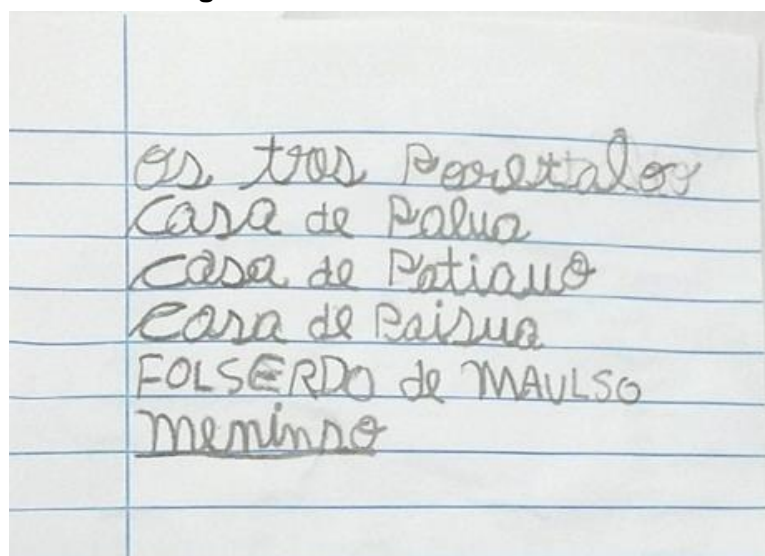 os tres Porextalos
casa de Palua
casa de Patiauo
casa de Paisua
FOLSERDO de MAULSO
meninno